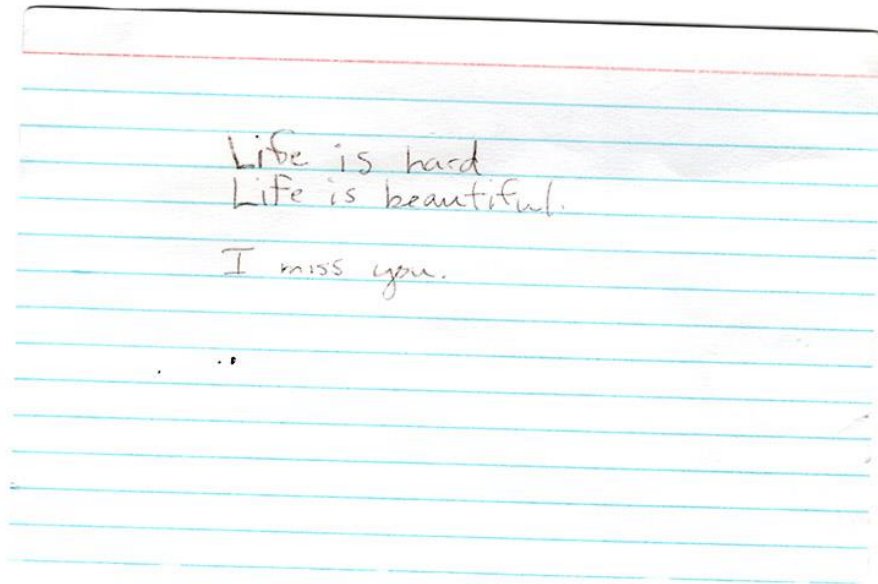 Life is hard
Life is beautiful.
I miss you.